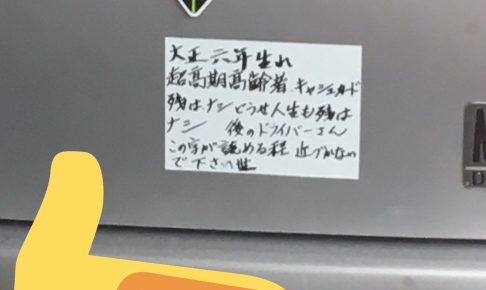 大正六年生れ
超高期高齢者 キャシュカード
残はナシどうせ人生も残は
ナシ 後のドライバーさん
この字が読める程 近づかないの
で下さい